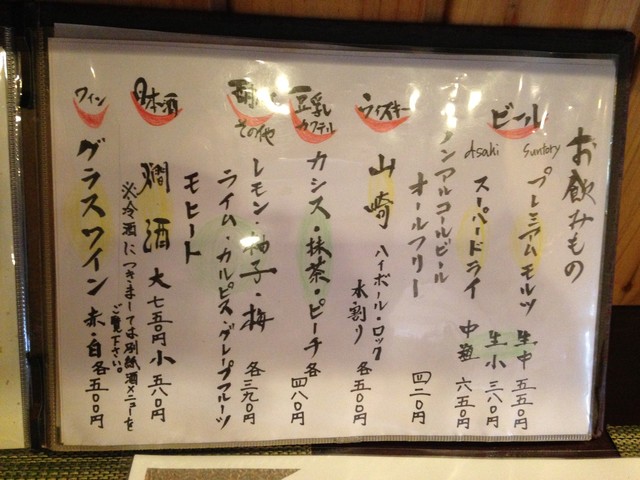 お飲みもの
ビール
Suntory
プレミアムモルツ 生中 五五〇円
生小 三八〇円
Asahi
スーパードライ 中瓶 六五〇円
ノンアルコールビール
オールフリー 四二〇円
ウイスキー
山崎 ハイボール・ロック
水割り 各五〇〇円
豆乳
カクテル
カシス・抹茶・ピーチ 各四八〇円
その他
レモン・柚子・梅 各三九〇円
ライム・カルピス・グレープフルーツ
モヒート
日本酒
燗酒 大七五〇円 小五八〇円
※冷酒につきましては別紙酒メニューを
ご覧下さい。
ワイン
グラスワイン 赤・白 各五〇〇円